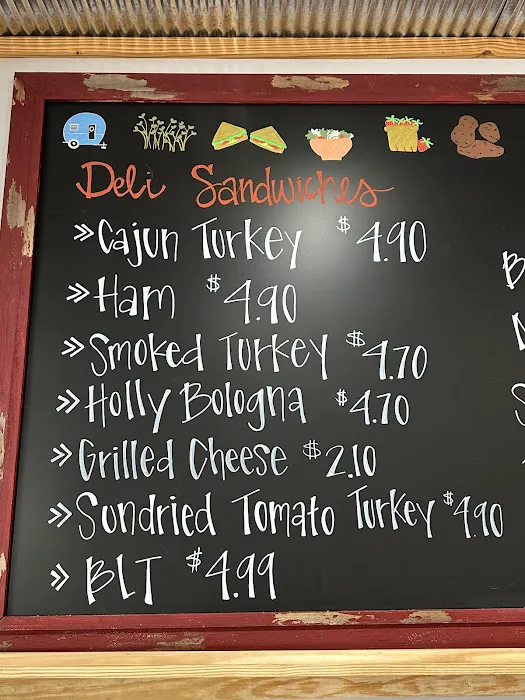 Deli Sandwiches
» Cajun Turkey $4.90
» Ham $4.90
» Smoked Turkey $4.70
» Holly Bologna $4.70
» Grilled Cheese $2.10
» Sundried Tomato Turkey $4.90
» BLT $4.99